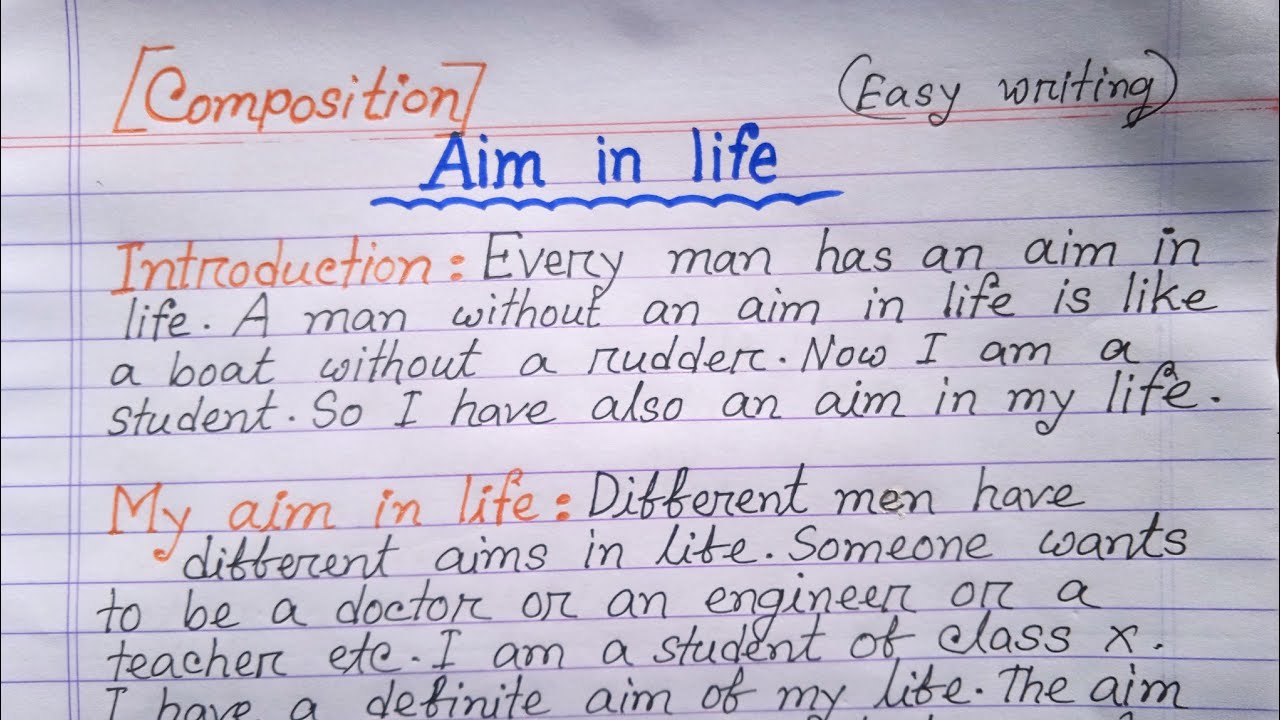 [Composition]
(Easy writing)
Aim in life
Introduction: Every man has an aim in
life. A man without an aim in life is like
a boat without a rudder. Now I am a
student. So I have also an aim in my life.
My aim in life: Different men have
different aims in life. Someone wants
to be a doctor or an engineer or a
teacher etc. I am a student of class x.
I have a definite aim of my life. The aim